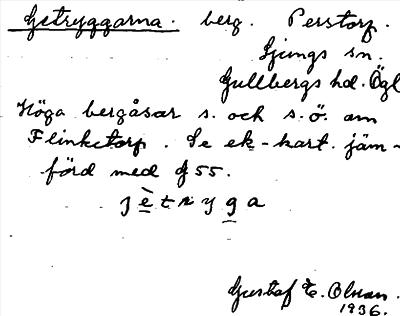 Getryggarna. berg. Perstorp.
Ljungs sn.
Gullbergs hd. Ögl
Höga bergåsar s. och s.ö. om
Flinketorp. Se ek-kart. jäm-
förd med g 55.
j è t r y g a
Gustaf E. Olsson.
1936.